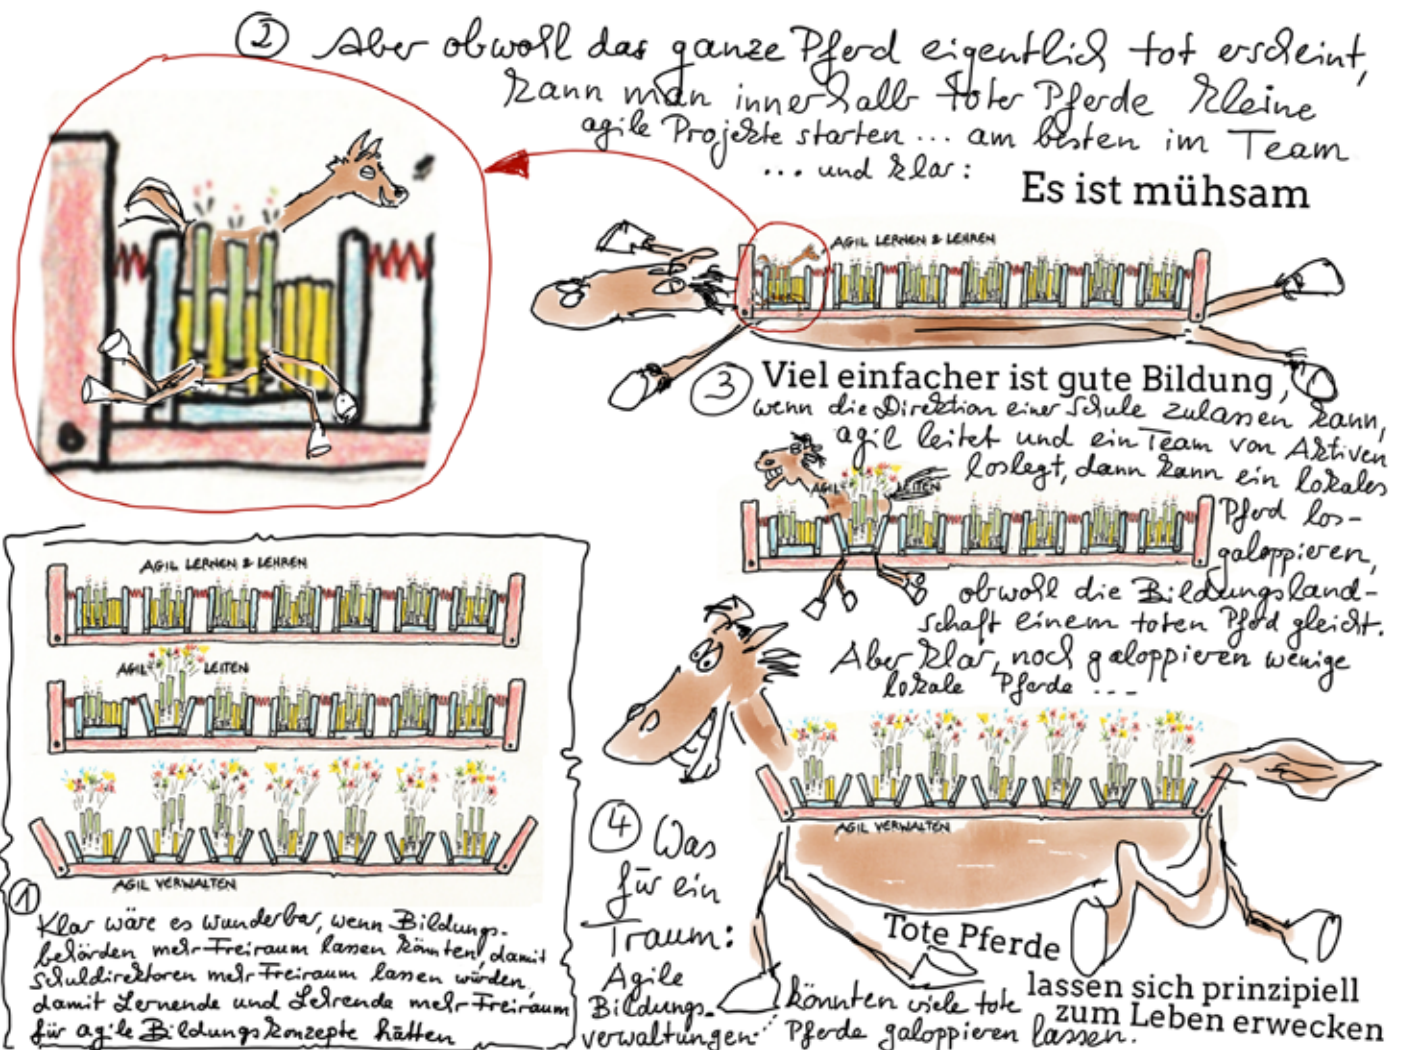 ② Aber obwohl das ganze Pferd eigentlich tot erscheint,
kann man innerhalb toter Pferde kleine
agile Projekte starten ... am besten im Team
... und klar:
Es ist mühsam
AGIL LERNEN & LEHREN
③ Viel einfacher ist gute Bildung,
wenn die Direktion einer Schule zulassen kann,
agil leitet und ein Team von Aktiven
loslegt, dann kann ein lokales
AGIL LEITEN
Pferd los-
galoppieren,
obwohl die Bildungsland-
schaft einem toten Pferd gleicht.
Aber klar, noch galoppieren wenige
lokale Pferde ...
AGIL LERNEN & LEHREN
AGIL LEITEN
AGIL VERWALTEN
①
Klar wäre es wunderbar, wenn Bildungs-
behörden mehr Freiraum lassen könnten, damit
Schuldirektoren mehr Freiraum lassen würden,
damit Lernende und Lehrende mehr Freiraum
für agile Bildungskonzepte hätten
AGIL VERWALTEN
④ Was
für ein
Traum:
Agile
Bildungs-
verwaltungen
könnten viele tote
Pferde galoppieren lassen.
Tote Pferde
lassen sich prinzipiell
zum Leben erwecken